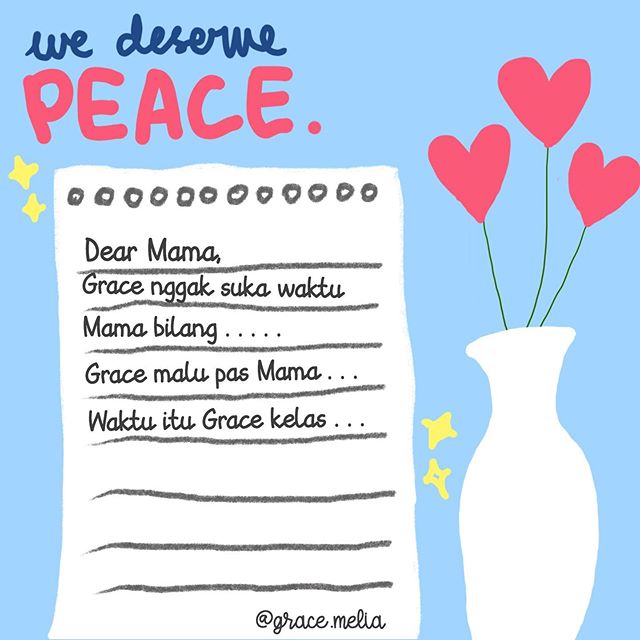 we deserve
PEACE.
Dear Mama,
Grace nggak suka waktu
Mama bilang . . . . .
Grace malu pas Mama . . .
Waktu itu Grace kelas . . .
@grace.melia